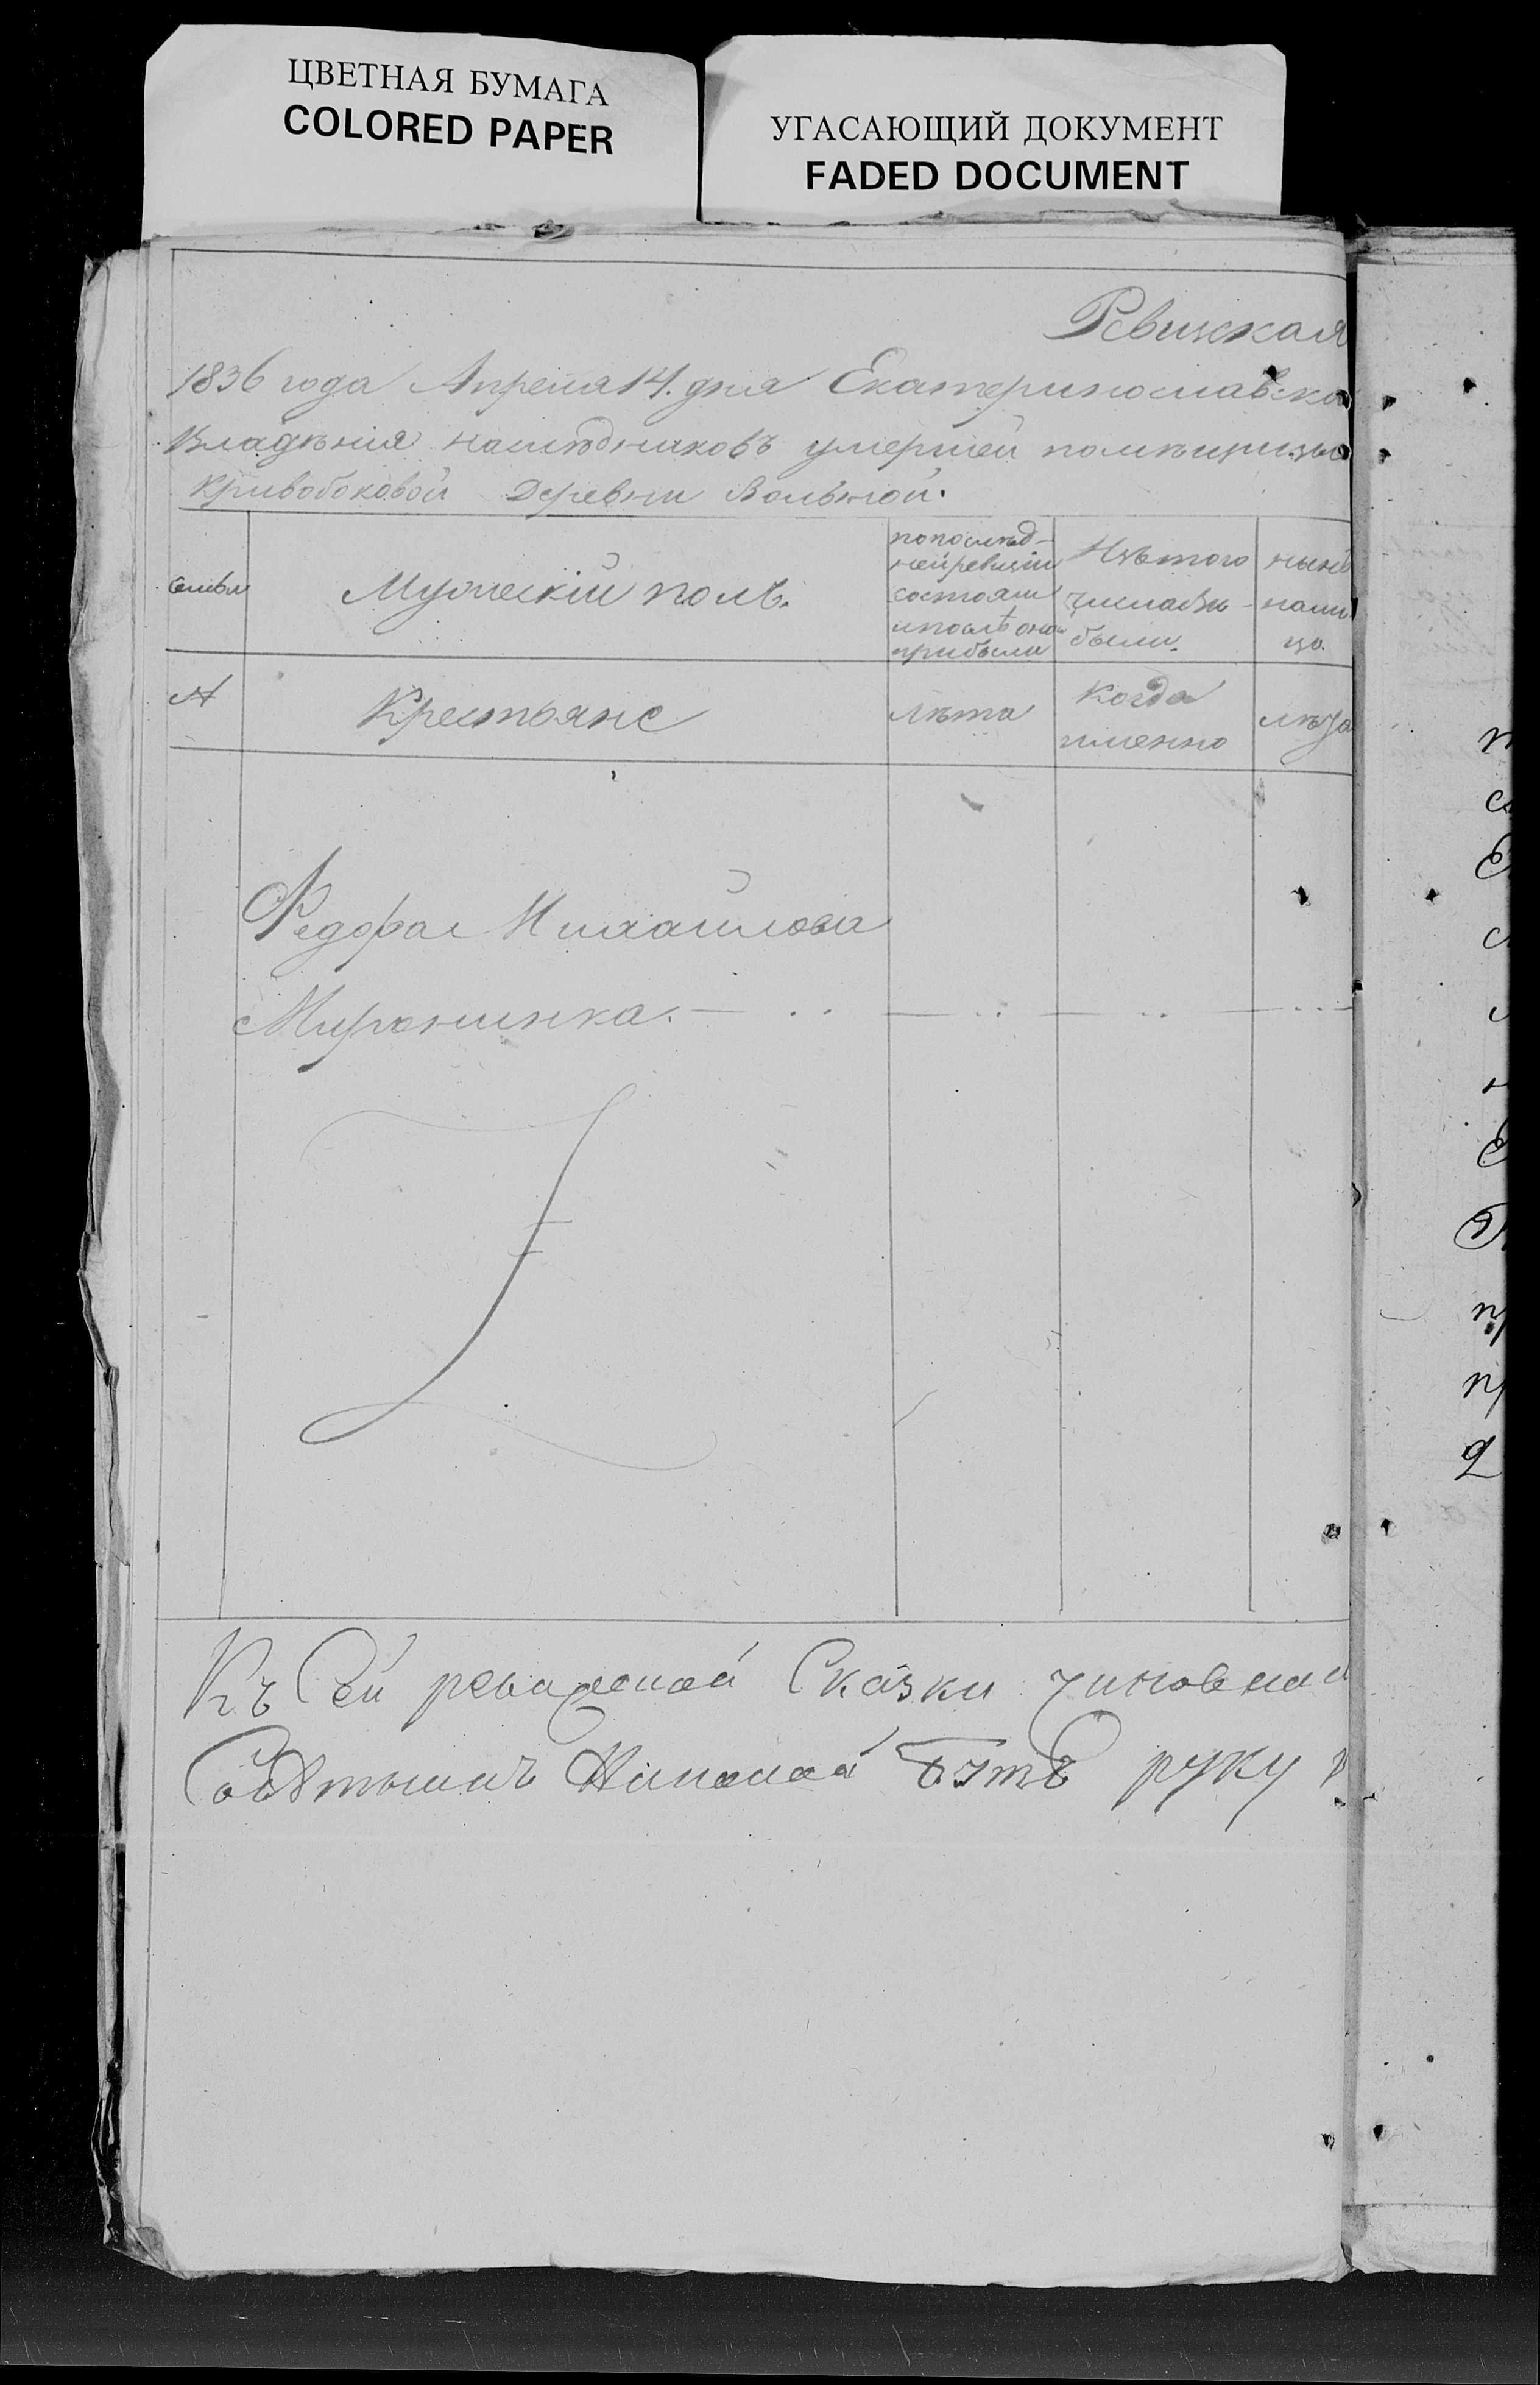 ЦВЕТНАЯ БУМАГА
COLORED PAPER
УГАСАЮЩИЙ ДОКУМЕНТ
FADED DOCUMENT
Ревизская
1836 года Апреля 14. дня Екатеринославско
Владѣния наслѣдниковъ умершей помѣщицы
Кривобоковой Деревни Вольной.
семьи
Мужескій полъ.
попослѣд-
нейревизіи
состояли
ипослѣ оно
прибыли
Изътого
числавы-
были.
нынѣ
нали
цо.
№
Крестьяне
лѣта
Когда
именно
лѣта
Федора Михайлова
Мироненка.
Къ Сей ревизской Сказки чиновни
Николай руку